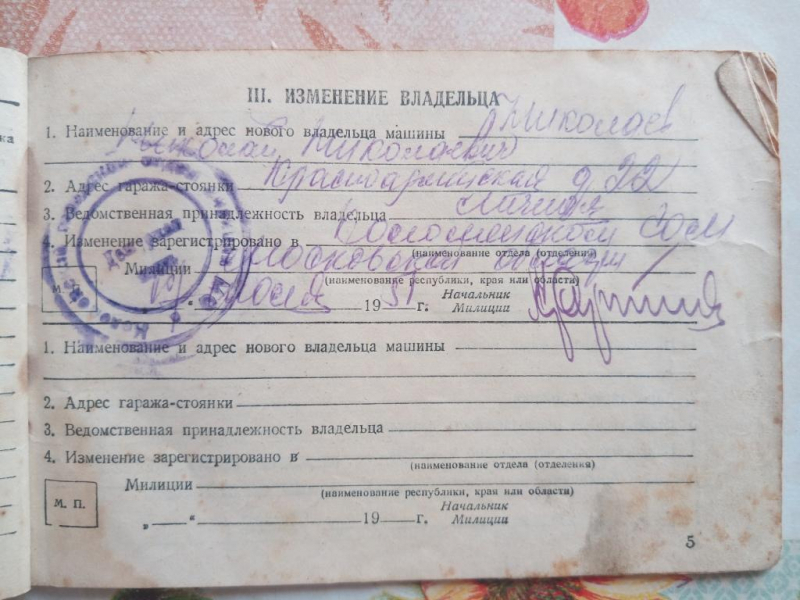 III. ИЗМЕНЕНИЕ ВЛАДЕЛЬЦА
1. Наименование и адрес нового владельца машины Николаев
Николай Николаевич
2. Адрес гаража-стоянки Красноармейская д 22
3. Ведомственная принадлежность владельца личная
4. Изменение зарегистрировано в Коломенском
(наименование отдела (отделения)
Милиции Московской области
(наименование республики, края или области)
19 г. Начальник
Милиции
1. Наименование и адрес нового владельца машины
2. Адрес гаража-стоянки
3. Ведомственная принадлежность владельца
4. Изменение зарегистрировано в
(наименование отдела (отделения)
Милиции
(наименование республики, края или области)
М. П.
„ “ 19 г. Начальник
Милиции
5